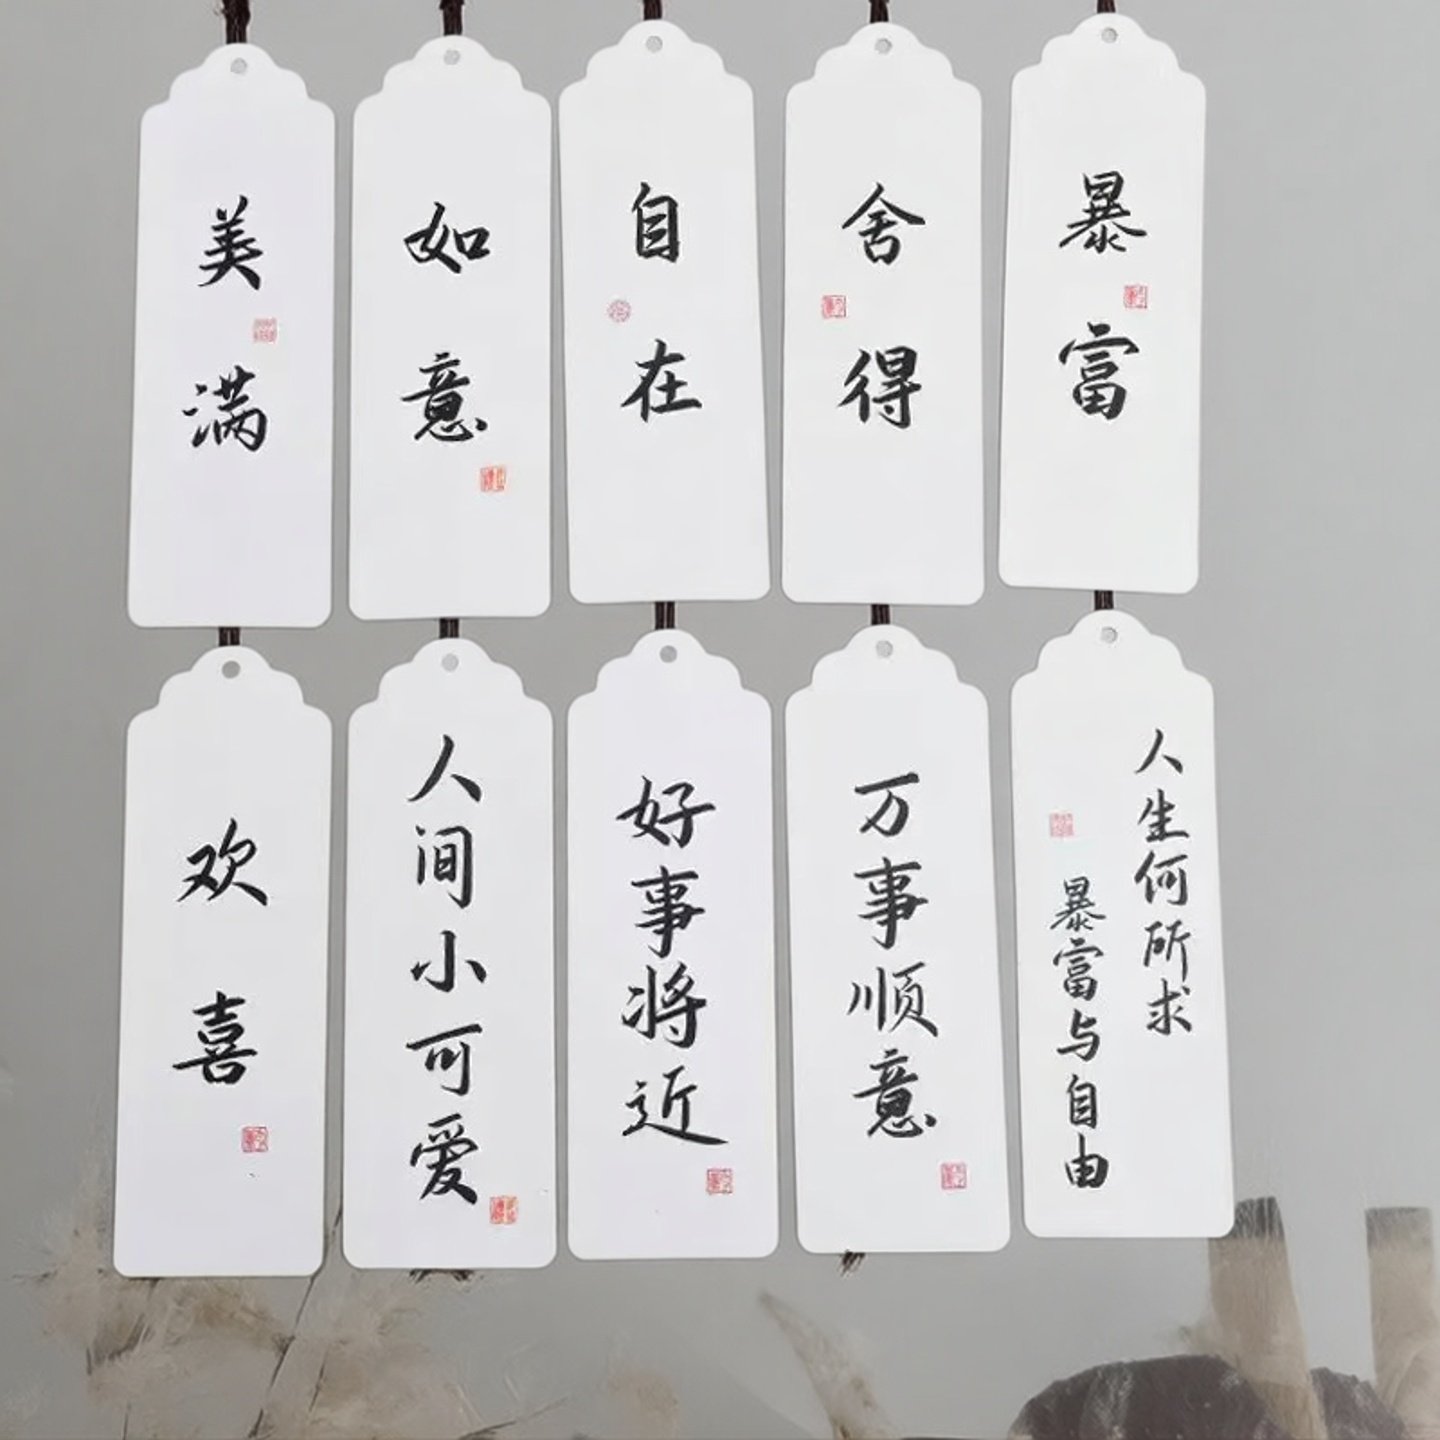 美满
如意
自在
舍得
暴富
欢喜
人间小可爱
好事将近
万事顺意
人生何所求
暴富与自由